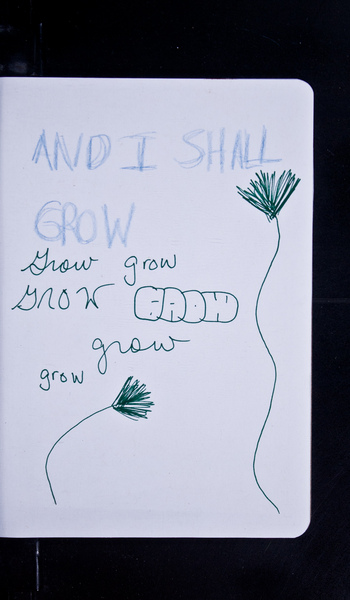 AND I SHALL
GROW
Grow grow
GROW GROW
grow
grow